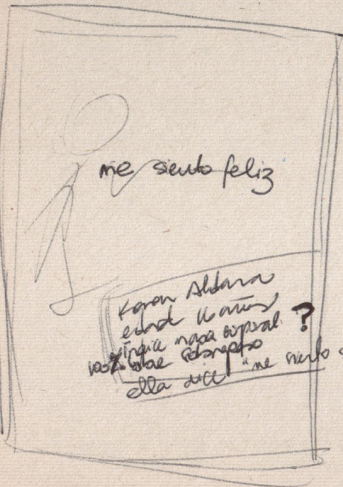 me siento feliz
Karen Aldana
edad 16 años
Indice masa corporal. ?
100% sobrepeso
ella dice "me siento